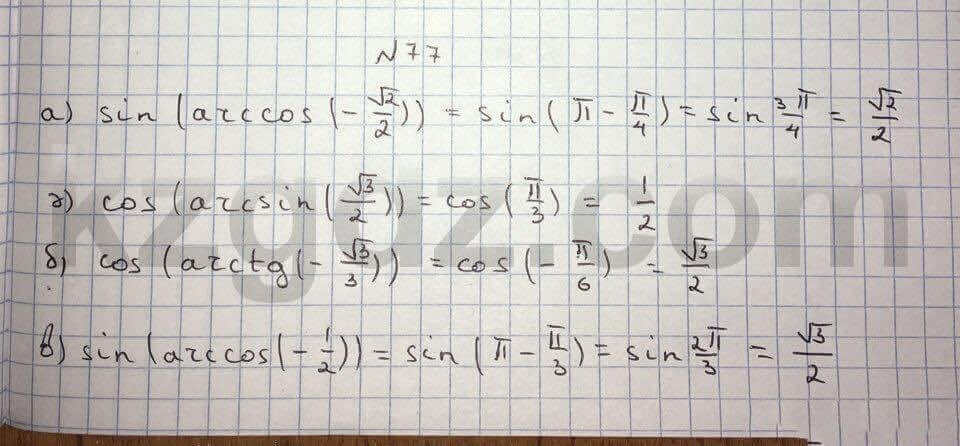 №77
а) sin (arccos (-√2/2)) = sin (π - π/4) = sin 3π/4 = √2/2
г) cos (arcsin (√3/2)) = cos (π/3) = 1/2
б) cos (arctg (-√3/3)) = cos (-π/6) = √3/2
в) sin (arccos (-1/2)) = sin (π - π/3) = sin 2π/3 = √3/2
kzgdz.com